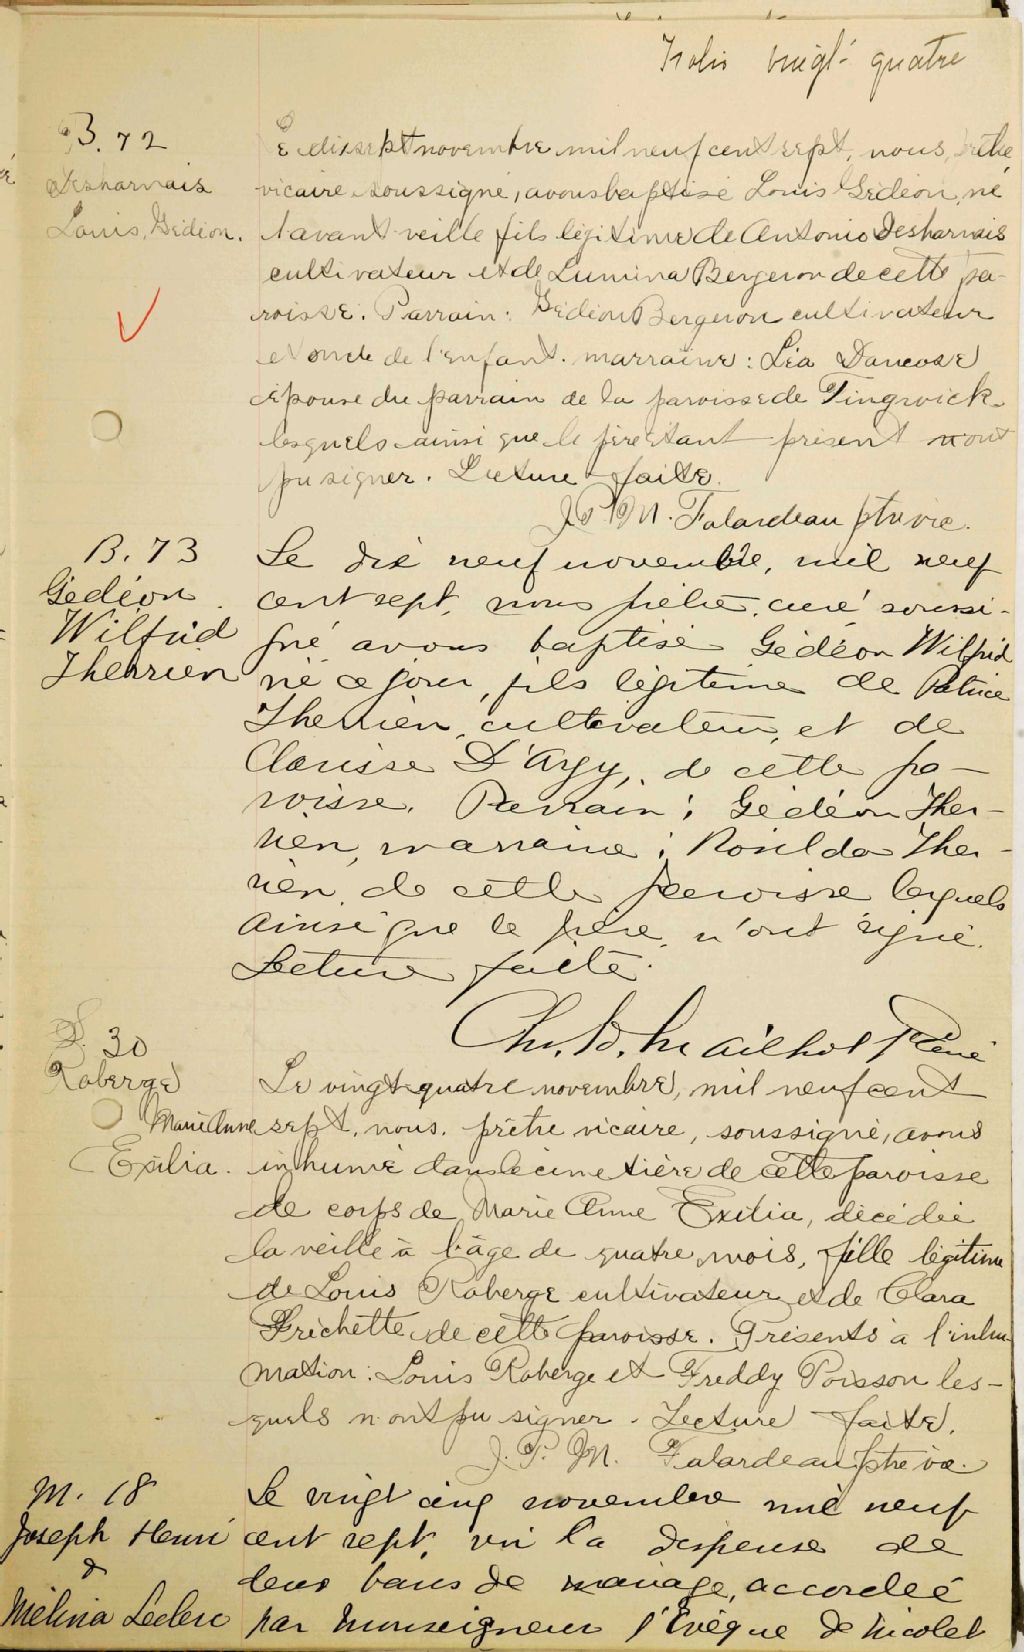 Folio vingt-quatre
B. 72
Desharnais
Louis, Gédéon.
Le dixsept novembre mil neuf cent sept, nous, prêtre
vicaire soussigné, avons baptisé Louis Gédéon, né
l'avant veille fils légitime de Antonio Desharnais
cultivateur et de Lumina Bergeron de cette pa-
roisse. Parrain: Gédéon Bergeron cultivateur
et oncle de l'enfant. marraine: Léa Dancose
épouse du parrain de la paroisse de Tingwick
lesquels ainsi que le père étant présent n'ont
pu signer. Lecture faite.
J. P. M. Falardeau ptre vic.
B. 73
Gédéon
Wilfrid
Therrien
Le dix neuf novembre, mil neuf
cent sept, nous prêtre, curé soussi-
gné avons baptisé Gédéon Wilfrid
né ce jour, fils légitime de Patrice
Therrien, cultivateur, et de
Clarisse D'Argy, de cette pa-
roisse. Parrain: Gédéon Ther-
rien, marraine: Rosilda Ther-
rien, de cette paroisse lesquels
ainsi que le père, n'ont signé.
Lecture faite.
Ch. B. Mailhot Ptre Curé
S. 30
Roberge
Marie Anne
Exilia.
Le vingt-quatre novembre, mil neuf cent
sept, nous, prêtre vicaire, soussigné, avons
inhumé dans le cimetière de cette paroisse
le corps de Marie Anne Exilia, décédée
la veille à l'âge de quatre mois, fille légitime
de Louis Roberge cultivateur et de Clara
Fréchette de cette paroisse. Présents à l'inhu-
mation: Louis Roberge et Freddy Poisson les-
quels n'ont pu signer. Lecture faite.
J. P. M. Falardeau ptre vic.
M. 18
Joseph Henri
&
Mélina Leclerc
Le vingt cinq novembre mil neuf
cent sept, vu la dispense de
deux bans de mariage, accordée
par Monseigneur l'Évêque de Nicolet